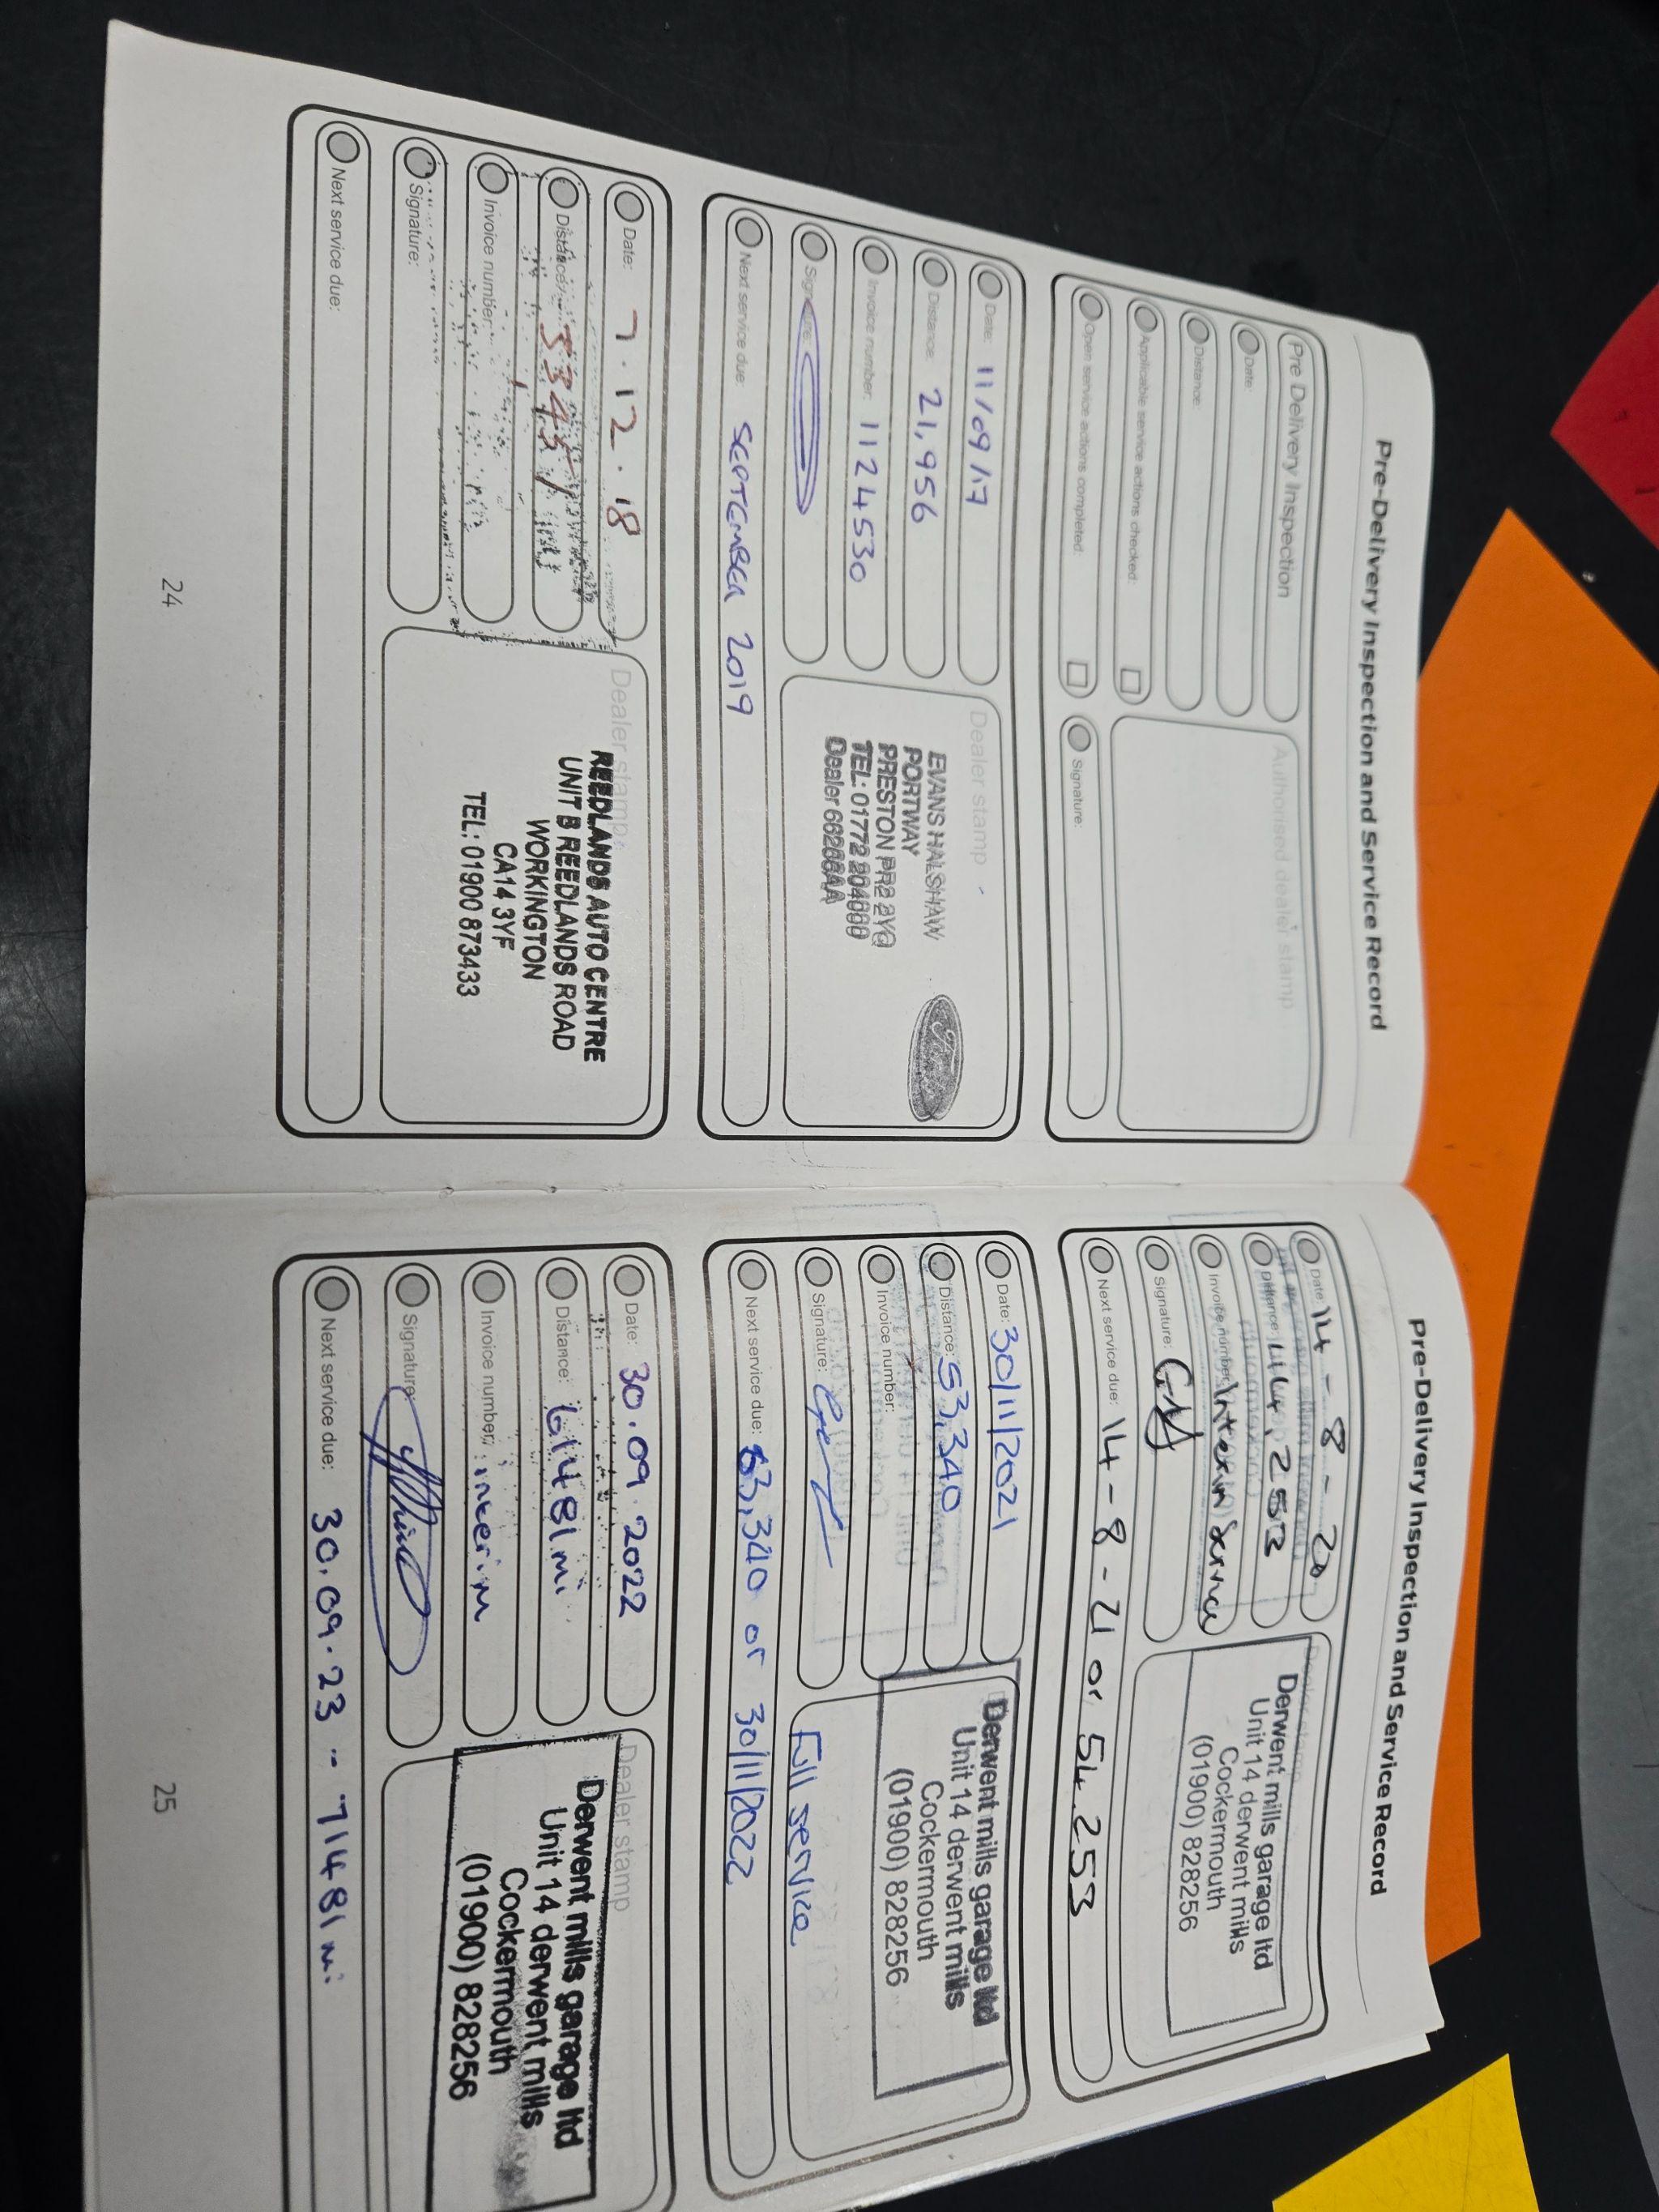 Pre-Delivery Inspection and Service Record
Pre Delivery Inspection
Date:
Distance:
Applicable service actions checked:
Open service actions completed:
Authorised dealer stamp
Signature:
Date: 11/09/17
Distance: 21,956
Invoice number: 1124530
Signature:
Next service due: SEPTEMBER 2019
Dealer stamp
EVANS HALSHAW
PORTWAY
PRESTON PR2 2YQ
TEL: 01772
Dealer
Ford
Date: 7.12.18
Distance:
Invoice number:
Signature:
Next service due:
Dealer stamp
REEDLANDS AUTO CENTRE
UNIT B REEDLANDS ROAD
WORKINGTON
CA14 3YF
TEL: 01900 873433
24
Pre-Delivery Inspection and Service Record
Date: 14-8-20
Distance: 44,253
Invoice number: Interim Service
Signature:
Next service due: 14-8-21 or 54,253
Dealer stamp
Derwent mills garage ltd
Unit 14 derwent mills
Cockermouth
(01900) 828256
Date: 30/11/2021
Distance: 53,340
Invoice number:
Signature:
Next service due: 63,340 or 30/11/2022
Derwent mills garage ltd
Unit 14 derwent mills
Cockermouth
(01900) 828256
Full service
Date: 30.09.2022
Distance: 61481mi
Invoice number: interim
Signature:
Next service due: 30.09.23 - 71481mi
Dealer stamp
Derwent mills garage ltd
Unit 14 derwent mills
Cockermouth
(01900) 828256
25